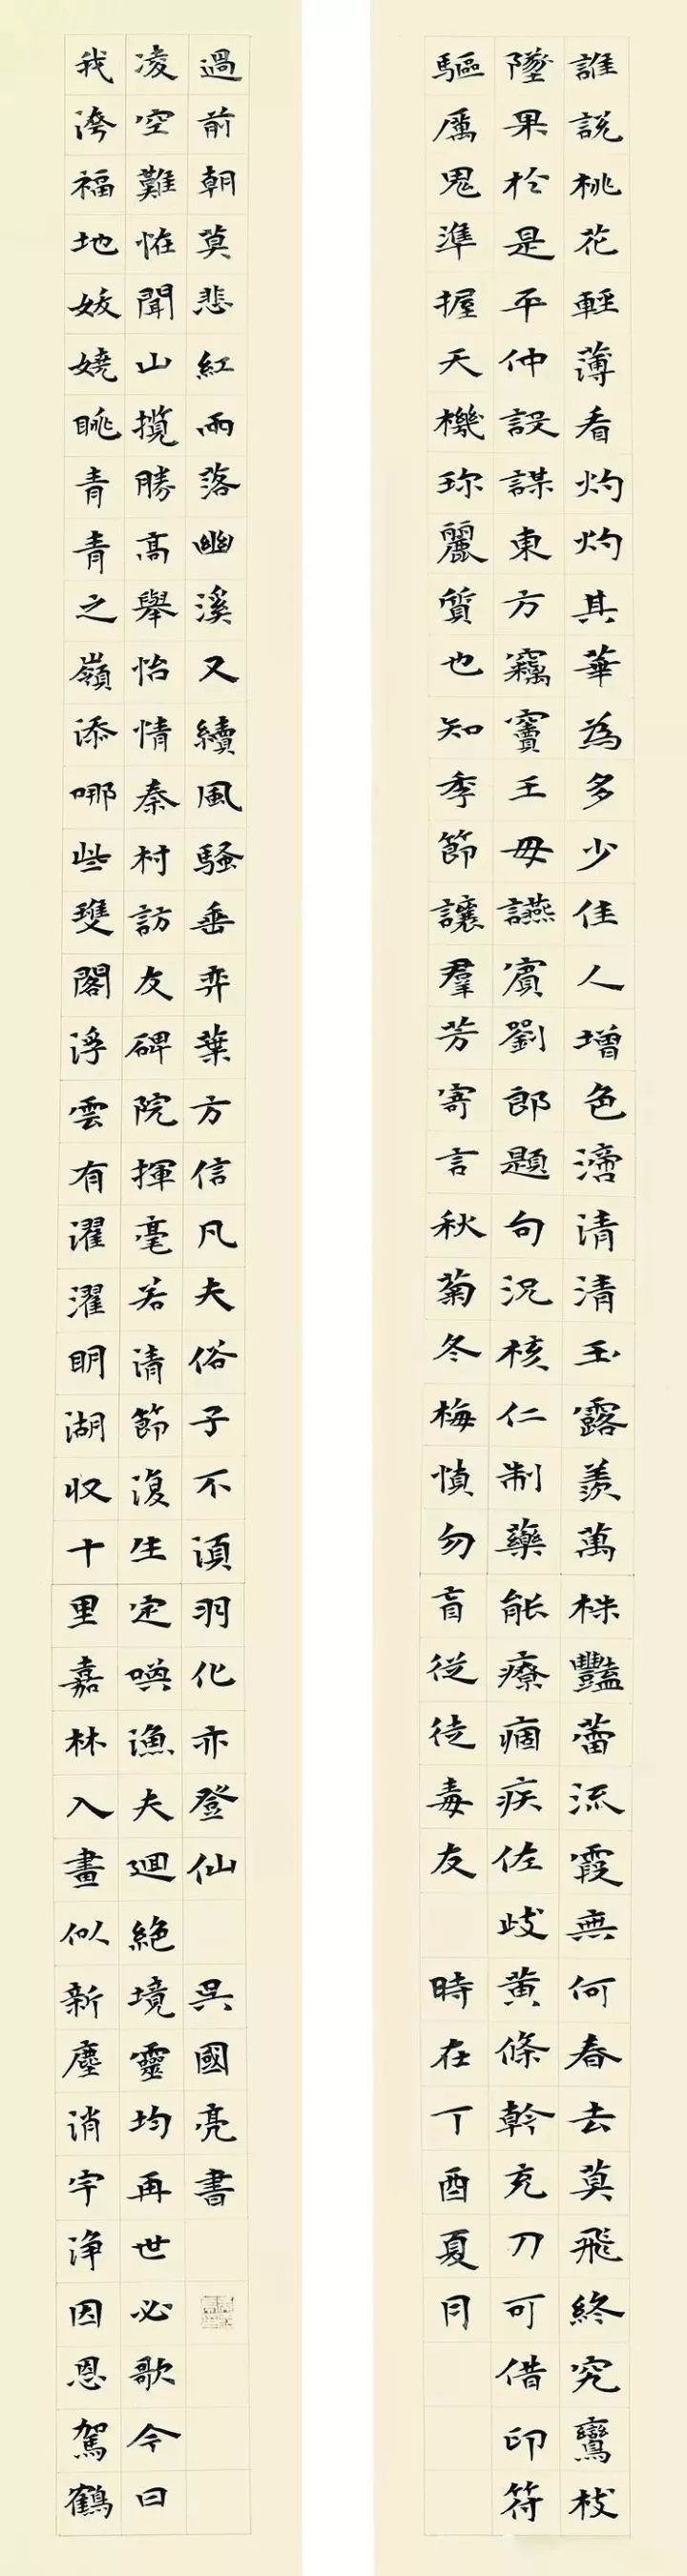 誰說桃花輕薄看灼灼其華為多少佳人增色清清玉露羨萬株豔蕾流霞無何春去莫飛終究鸞枝
墜果於是平仲設謀東方竊竇王母讌賓劉郎題句況核仁制藥能療痼疾佐歧黃條幹充刀可借印符
驅厲鬼準握天機珎麗質也知季節讓羣芳寄言秋菊冬梅慎勿盲從徒毒友 時在丁酉夏月
我濟福地嬈眺青青之嶺添哪些雙閣浮雲有濯濯明湖收十里嘉林入畫似新塵消宇淨因恩駕鶴
凌空難怪聞山攬勝高舉怡情秦村訪友碑院揮毫若清節復生定喚漁夫迴絕境靈均再世必歌今日
過前朝莫悲紅雨落幽溪又續風騷垂弈葉方信凡夫俗子不須羽化亦登仙 吳國亮書